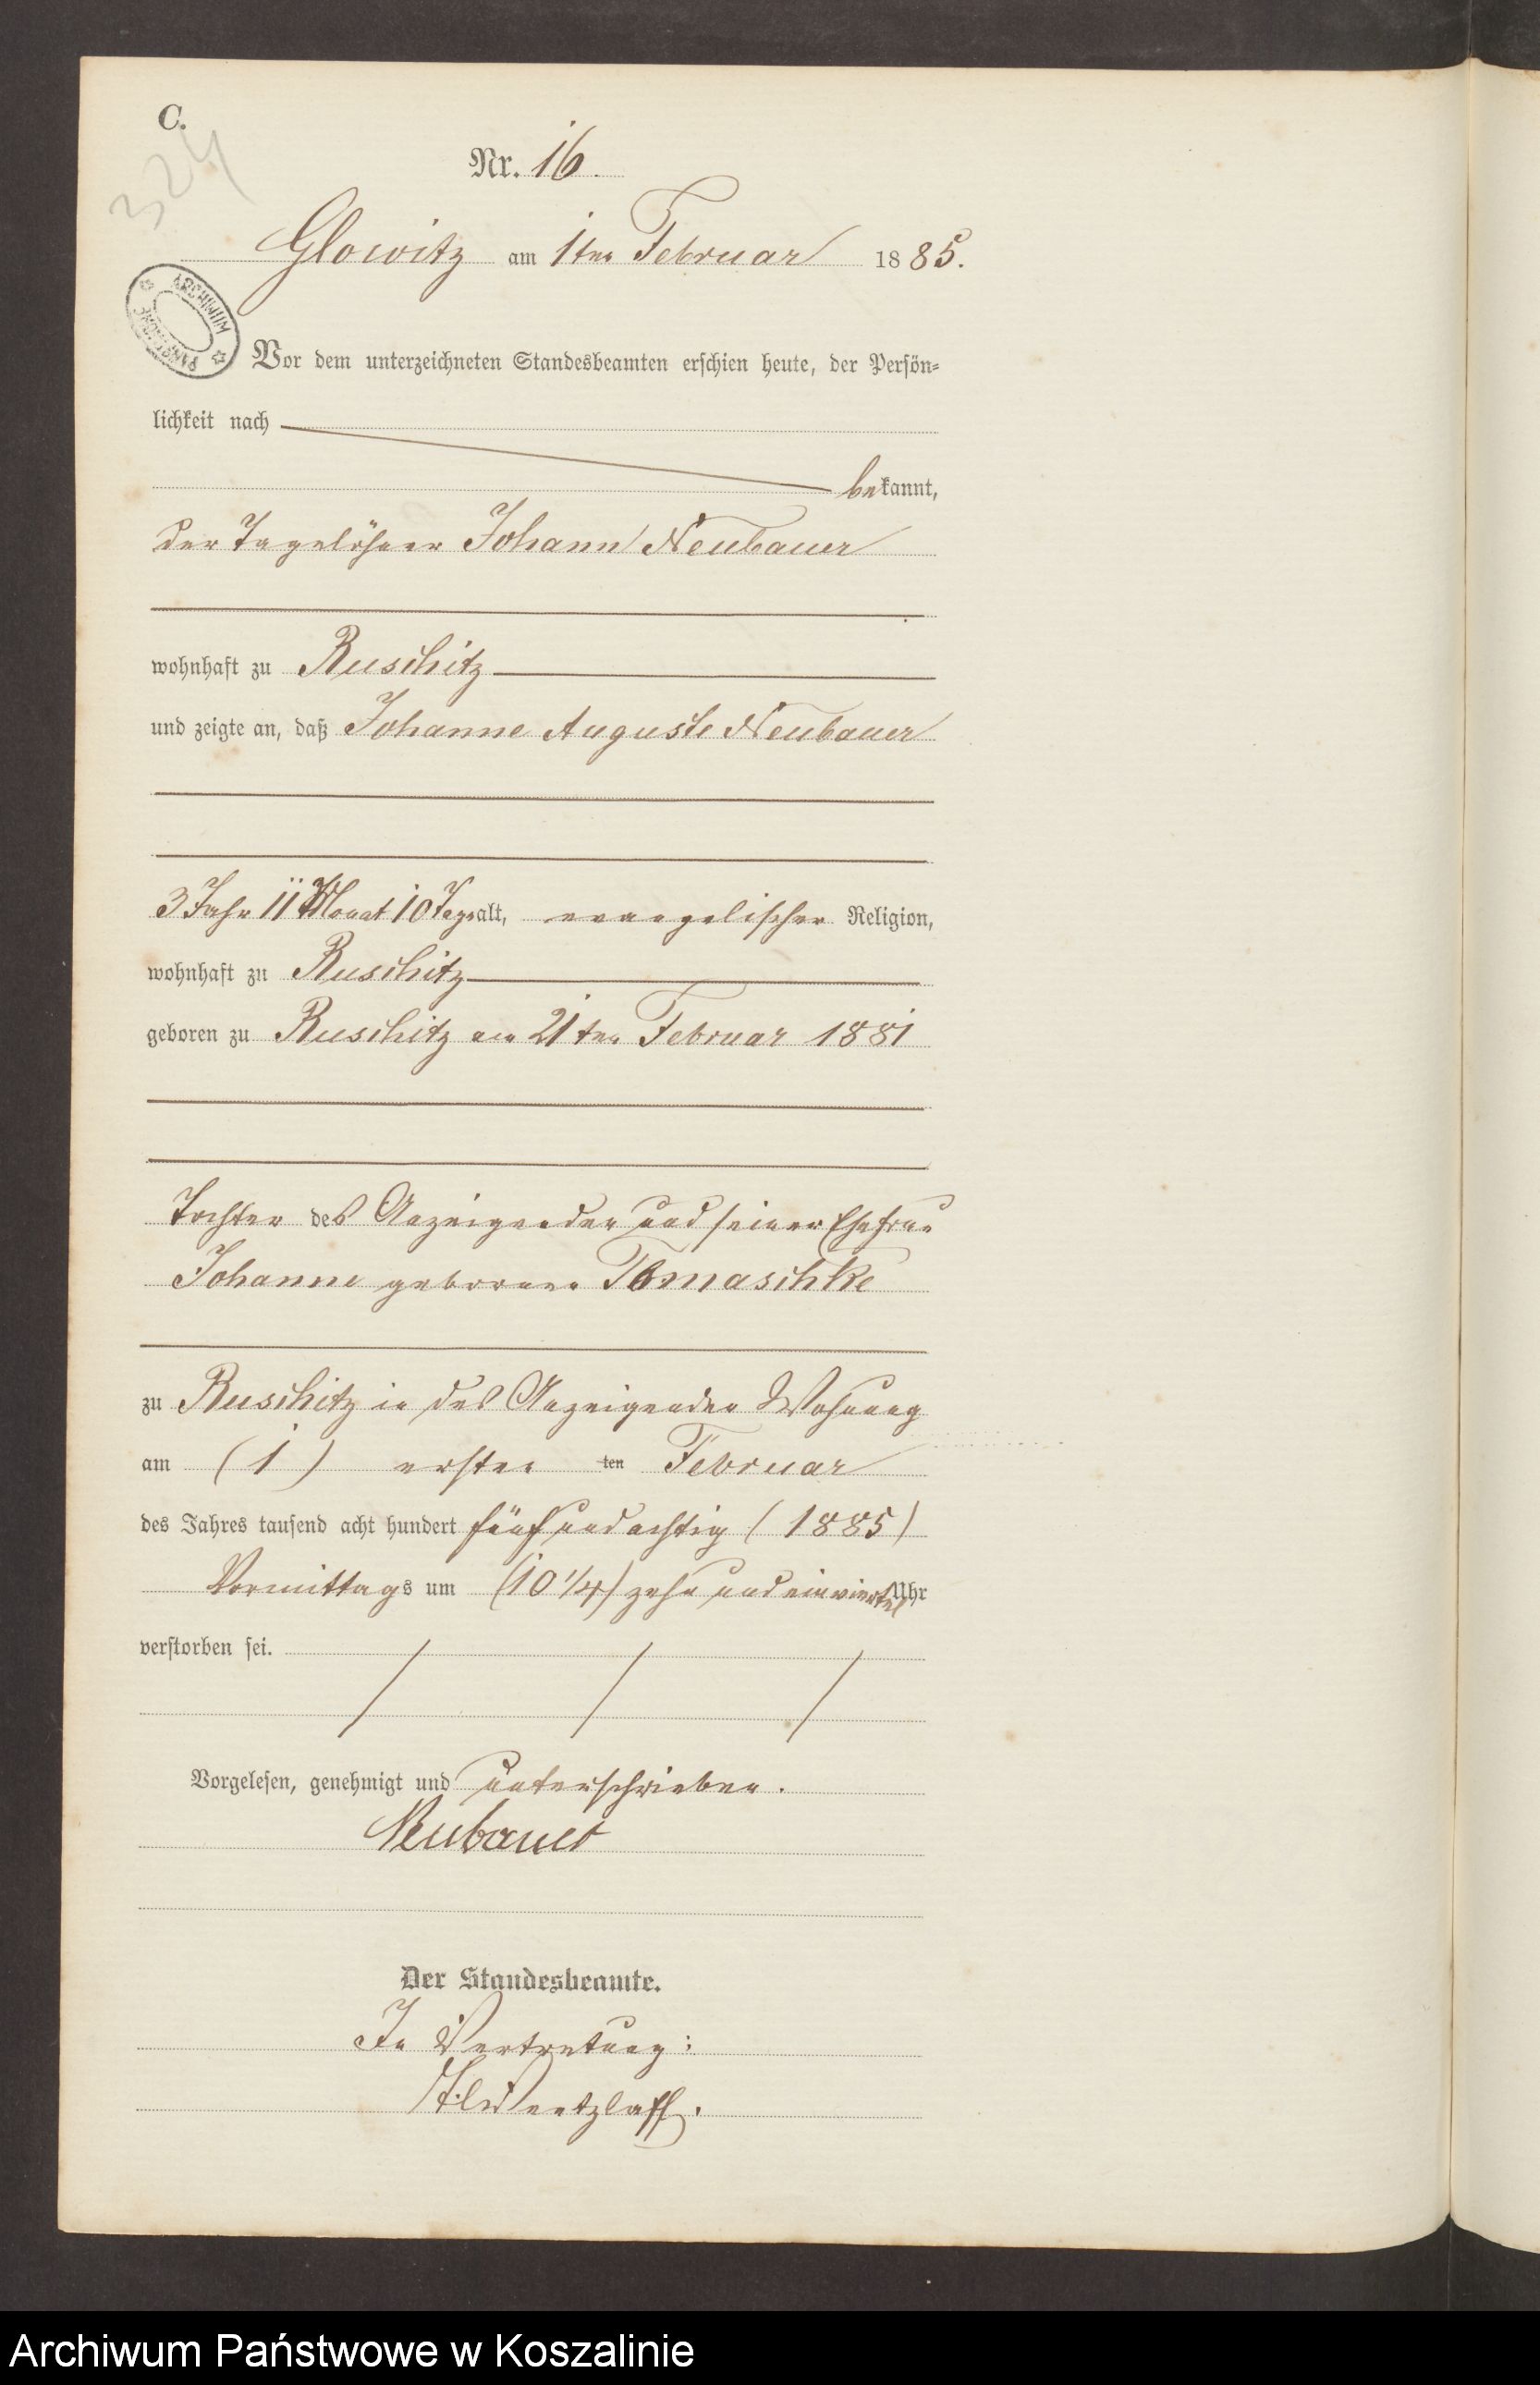 C.
324
Nr. 16.
Glowitz am 1ten Februar 1885.
ARCHIWUM PAŃSTWOWE
Vor dem unterzeichneten Standesbeamten erschien heute, der Persön-
lichkeit nach
bekannt,
der Tagelöhner Johann Neubauer
wohnhaft zu Ruschitz
und zeigte an, daß Johanne Auguste Neubauer
3 Jahr 11 Monat 10 Tage alt, evangelischer Religion,
wohnhaft zu Ruschitz
geboren zu Ruschitz am 21ten Februar 1881
Tochter des Anzeigenden und seiner Ehefrau
Johanne geborene Tomaschke
zu Ruschitz in des Anzeigenden Wohnung
am (1) ersten ten Februar
des Jahres tausend acht hundert fünf und achtzig (1885)
Vormittags um (10 1/4) zehn und ein viertel Uhr
verstorben sei.
Vorgelesen, genehmigt und unterschrieben.
Neubauer
Der Standesbeamte.
In Vertretung:
Wentzlaff.
Archiwum Państwowe w Koszalinie